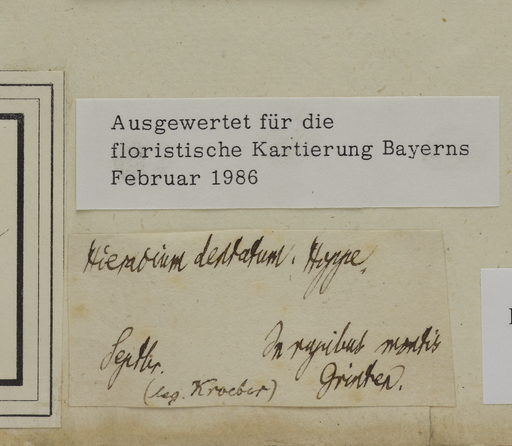 Ausgewertet für die
floristische Kartierung Bayerns
Februar 1986
Hieracium dentatum. Hoppe.
Septbr. In rupibus montis
(leg. Kroeber) Grinten.